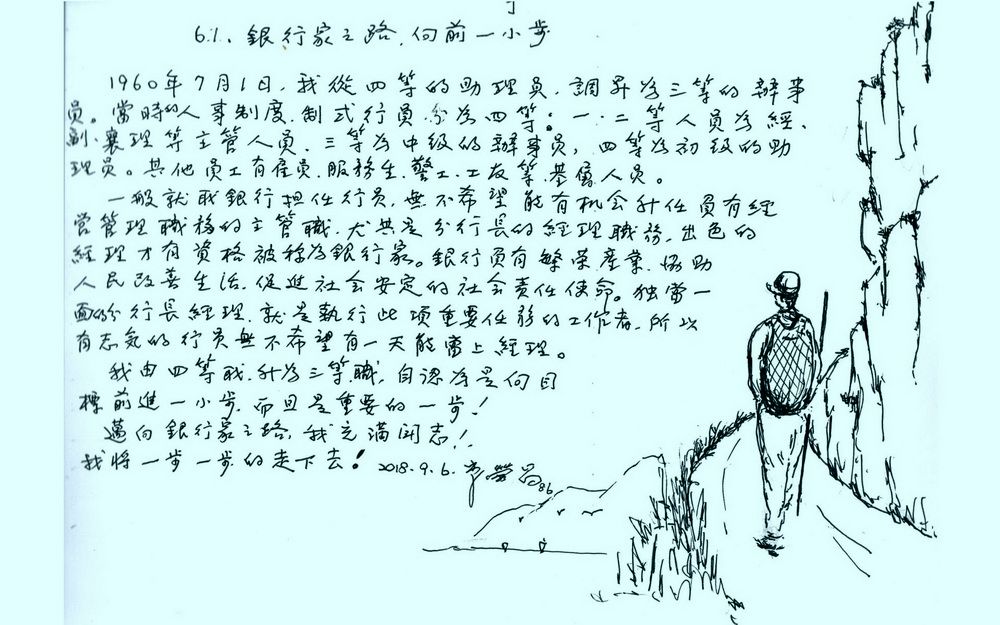 61、銀行家之路，向前一小步
1960年7月1日，我從四等的助理員，調昇為三等的辦事
員。當時的人事制度，制式行員，分為四等：一、二等人員為經、
副、襄理等主管人員，三等為中級的辦事員，四等為初級的助
理員。其他員工有雇員、服務生、警工、工友等，基層人員。
一般就職銀行担任行員，無不希望能有机会升任員有經
營管理職務的主管職，尤其是分行長的經理職務，出色的
經理才有資格被称為銀行家。銀行員有繁荣產業，协助
人民改善生活，促進社会安定的社会責任使命。独當一
面的分行長經理，就是執行此項重要任務的工作者，所以
有志氣的行員無不希望有一天能當上經理。
我由四等職，升為三等職，自認為是向目
標前進一小步，而且是重要的一步！
邁向銀行家之路，我充滿鬥志！
我將一步一步的走下去！ 2018.9.6. 86